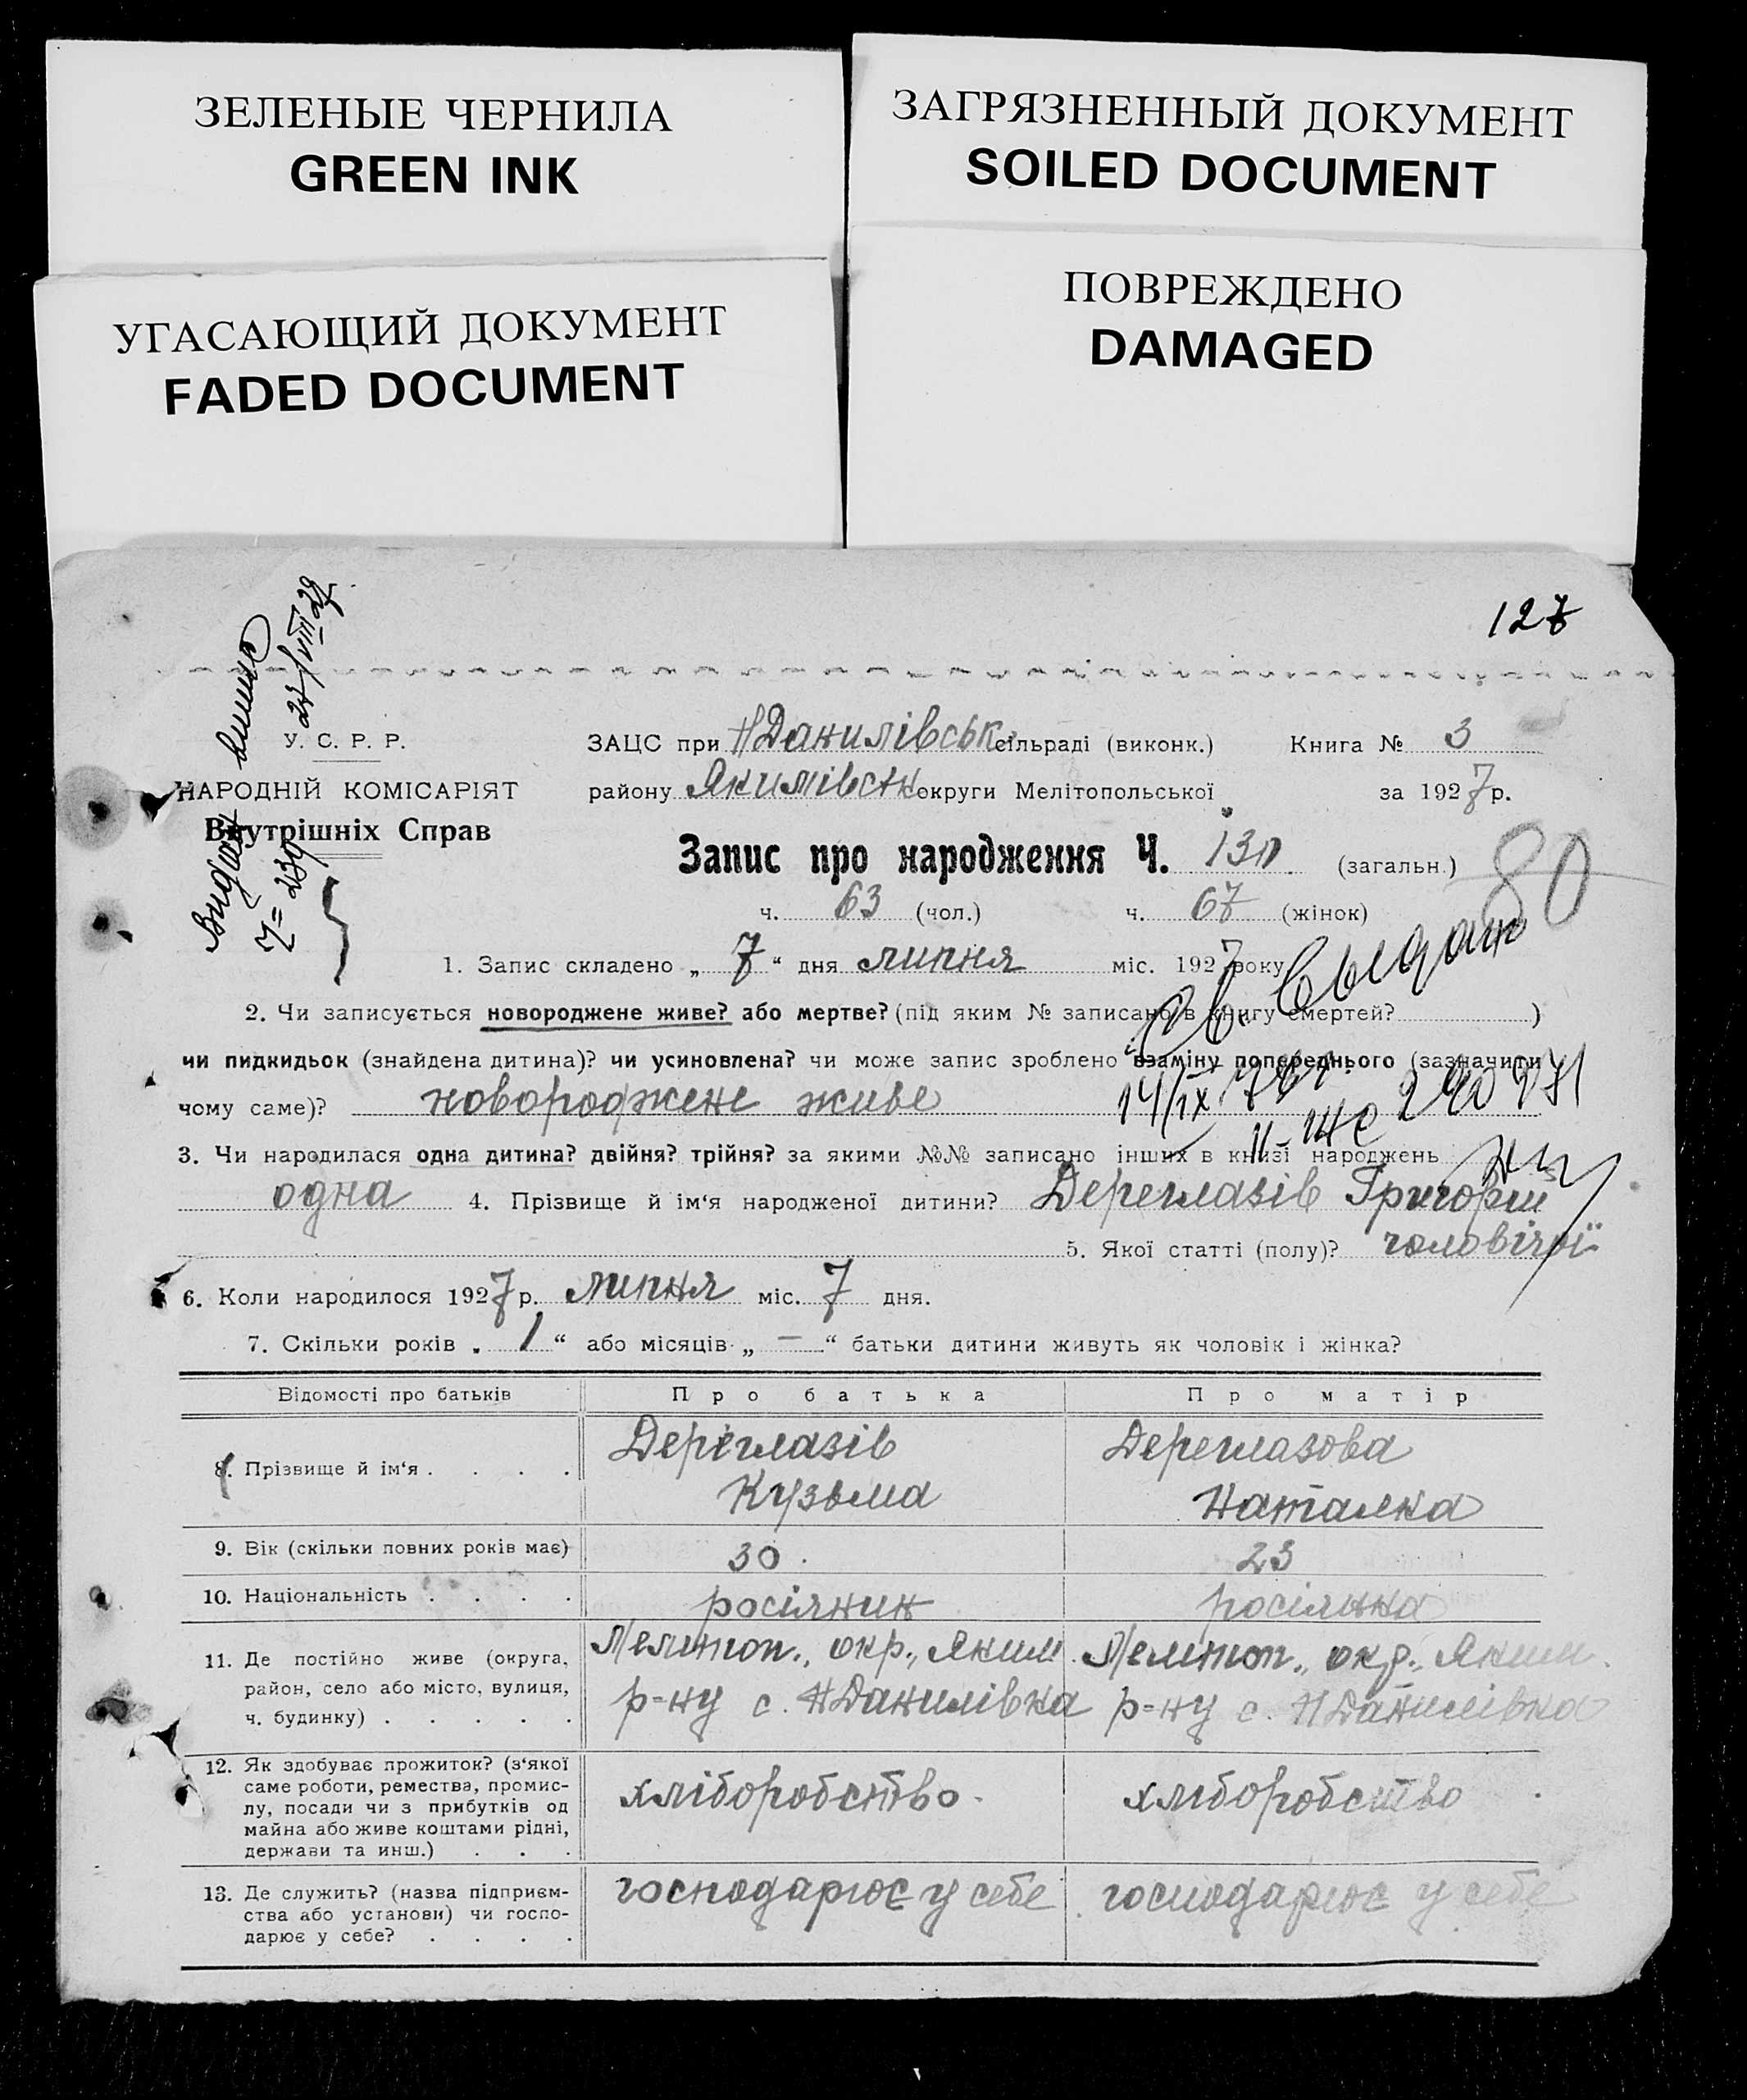 ЗЕЛЕНЫЕ ЧЕРНИЛА
GREEN INK
ЗАГРЯЗНЕННЫЙ ДОКУМЕНТ
SOILED DOCUMENT
УГАСАЮЩИЙ ДОКУМЕНТ
FADED DOCUMENT
ПОВРЕЖДЕНО
DAMAGED
127
У. С. Р. Р.
НАРОДНІЙ КОМІСАРІЯТ
Внутрішніх Справ
ЗАЦС при НДанилівськ. сільраді (виконк.) Книга № 3
району Якимівськ округи Мелітопольської за 1927 р.
Запис про народження Ч. 130 (загальн.)
80
ч. 63 (чол.) ч. 67 (жінок)
1. Запис складено „ 7 “ дня липня міс. 1927 року
2. Чи записується новороджене живе? або мертве? (під яким № записано в книгу смертей? )
чи пидкидьок (знайдена дитина)? чи усиновлена? чи може запис зроблено взаміну попереднього (зазначити
чому саме)? новороджене живе
3. Чи народилася одна дитина? двійня? трійня? за якими №№ записано інших в книзі народжень
одна 4. Прізвище й ім‘я народженої дитини? Дереглазів Григорій
5. Якої статті (полу)? чоловічої
6. Коли народилося 1927 р. липня міс. 7 дня.
7. Скільки років „ 1 “ або місяців „ — “ батьки дитини живуть як чоловік і жінка?
Відомості про батьків Про батька Про матір
8. Прізвище й ім‘я . . . . Дереглазів Кузьма Дереглазова Наталка
9. Вік (скільки повних років має) 30. 23
10. Національність . . . . росіянин росіянка
11. Де постійно живе (округа,
район, село або місто, вулиця,
ч. будинку) . . . . .
Мелитоп., окр., Яким.
р-ну с. НДанилівка
Мелитоп., окр., Яким.
р-ну с. НДанилівка
12. Як здобуває прожиток? (з‘якої
саме роботи,ремества, промис-
лу, посади чи з прибутків од
майна або живе коштами рідні,
держави та инш.) . . .
хліборобство хліборобство
13. Де служить? (назва підприєм-
ства або установи) чи госпо-
дарює у себе? . . . .
господарює у себе господарює у себе
Видан випис
Ч= 239 23/VIII 27
Св. выдан
14/IX 76г.
II-ЖС 290971